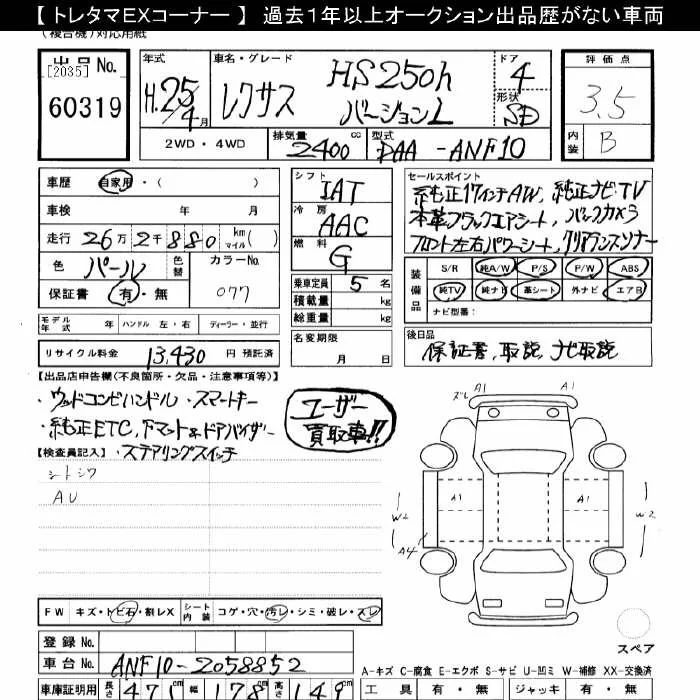 【 トレタマEXコーナー 】 過去1年以上オークション出品歴がない車両
(複合機)対応用紙
出品No.
[2035]
60319
年式
H.25/4月
車名・グレード
レクサス HS250h
バージョンL
ドア
4
形状
SD
評価点
3.5
内装
B
2WD ・ 4WD
排気量
2400 cc
型式
DAA - ANF10
車歴 自家用・( )
車検 年 月
走行 26万2千880 km マイル( )
色 パール 色替 カラーNo.
077
保証書 有・無
シフト
IAT
冷房
AAC
燃料
G
乗車定員 5 名
積載量 kg
総重量 kg
名変期限
月 日
セールスポイント
純正17インチAW, 純正ナビ・TV
本革ブラックエアシート, バックカメラ
フロント左右パワーシート, クリアランスソナー
装備品
S/R 純A/W P/S P/W ABS
純TV 純ナビ 革シート 外ナビ エアB
ナビ型番:
モデル年式 年 ハンドル 左・右 ディーラー・並行
リサイクル料金 13,430 円 預託済
後日品
保証書, 取説, ナビ取説
【出品店申告欄(不良箇所・欠品・注意事項等)】
・ウッドコンビハンドル ・スマートキー
・純正ETC, Fマット&ドアバイザー
・ステアリングスイッチ
ユーザー
買取車!!
【検査員記入】
シートシワ
AU
ズレ A1 A1
A1 A1
W2 W2
A4
FW キズ・トビ石・割レX シート内装 コゲ・穴・汚レ・シミ・破レ・スレ
スペア
登録No.
車台No. ANF10-2058852
A-キズ C-腐食 E-エクボ S-サビ U-凹ミ W-補修 XX-交換済
車庫証明用 長さ 471 幅 178 高さ 149
工具 有・無 ジャッキ 有・無